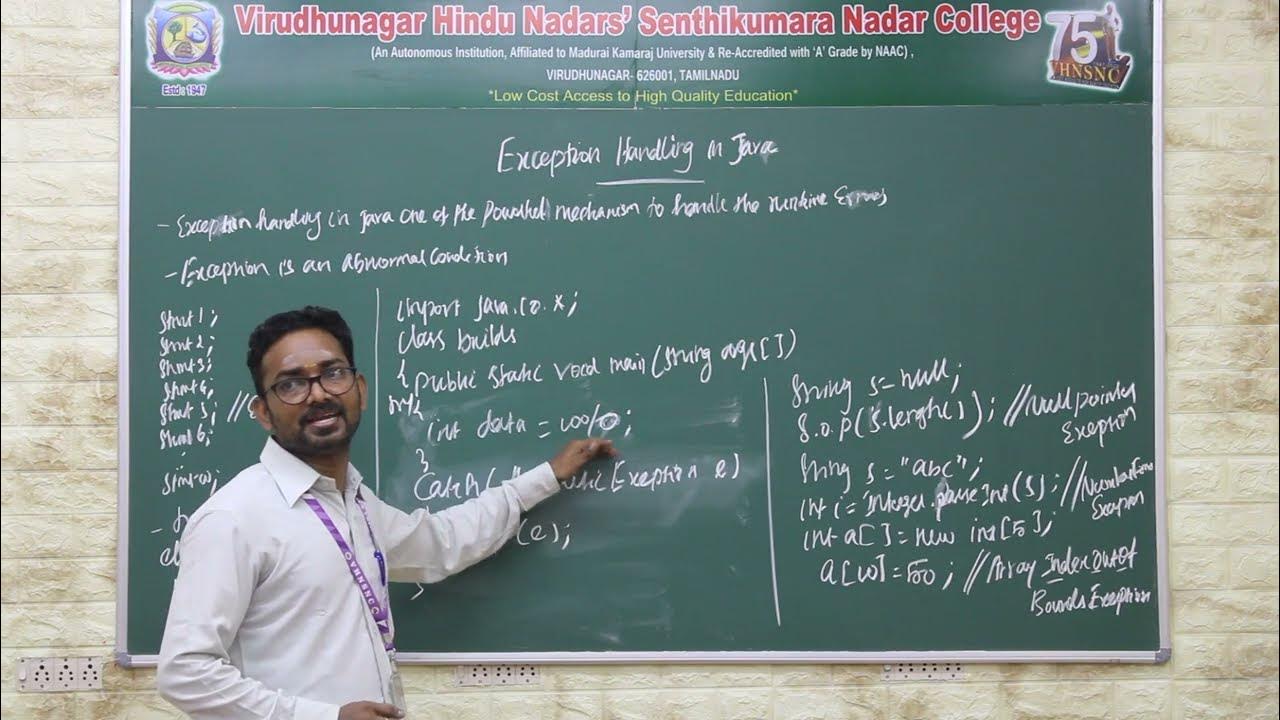 Virudhunagar Hindu Nadars' Senthikumara Nadar College
(An Autonomous Institution, Affiliated to Madurai Kamaraj University & Re-Accredited with 'A' Grade by NAAC) ,
VIRUDHUNAGAR- 626001, TAMILNADU
*Low Cost Access to High Quality Education*
Estd : 1947
75
VHNSNC
Exception Handling in Java
- Exception handling in java one of the mechanism to handle the runtime Errors
- Exception is an abnormal condition
Stmt 1;
Stmt 2;
Stmt 3;
Stmt 4;
Stmt 5; //
Stmt 6;
import java.io.*;
class builds
{ public static void main(String args[])
try{
int data = 100/0;
}
catch( Exception e)
(e);
}
String s=null;
S.o.p(s.length()); //Null pointer
Exception
String s="abc";
int i=Integer.parseInt(s); //
Exception
int a[]=new int[5];
a[10]=50; //Array Index Out Of
Bounds Exception
VHNSNC